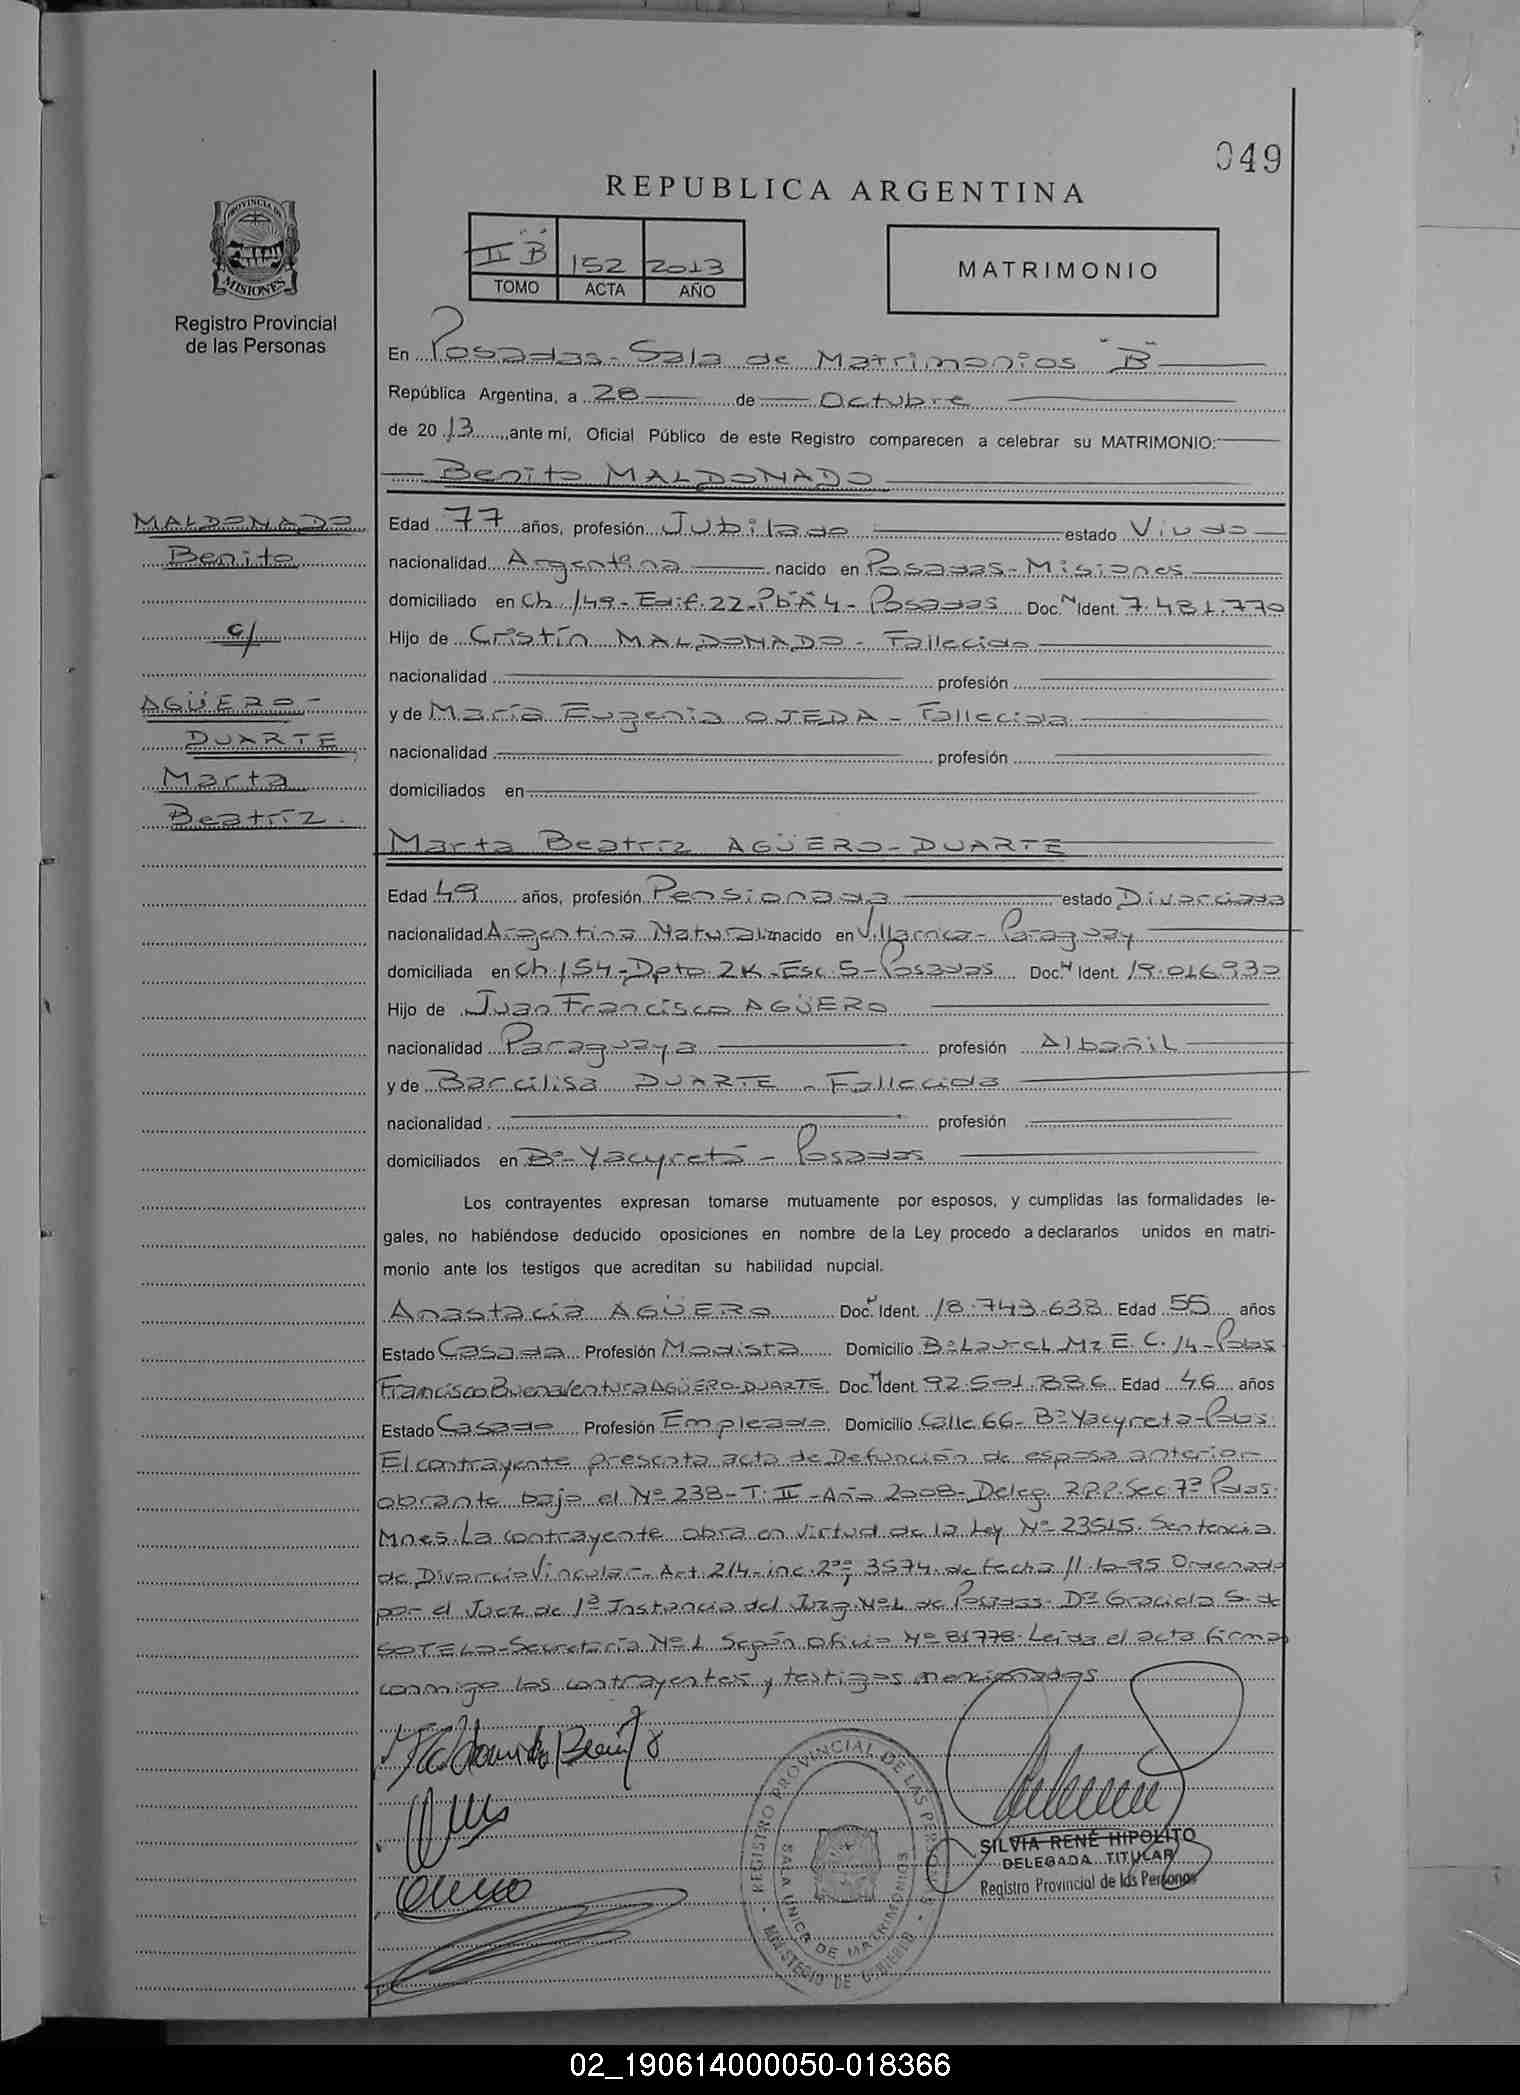 049
REPUBLICA ARGENTINA
PROVINCIA DE
MISIONES
Registro Provincial
de las Personas
II "B" 152 2013
TOMO ACTA AÑO
MATRIMONIO
En Posadas - Sala de Matrimonios "B"
República Argentina, a 28 de Octubre
de 2013, ante mí, Oficial Público de este Registro comparecen a celebrar su MATRIMONIO:
Benito MALDONADO
MALDONADO
Benito
c/
AGÜERO-
DUARTE
Marta
Beatríz.
Edad 77 años, profesión Jubilado estado Viudo
nacionalidad Argentina nacido en Posadas - Misiones
domiciliado en Ch. 149 - Edif. 22 - Pb"A"4 - Posadas Doc. N Ident. 7.481.770
Hijo de MALDONADO - Fallecido
nacionalidad profesión
y de María Eugenia OJEDA - Fallecida
nacionalidad profesión
domiciliados en
Marta Beatríz AGÜERO-DUARTE
Edad 49 años, profesión Pensionada estado Divorciada
nacionalidad Argentina Naturaliz nacido en Villarrica - Paraguay
domiciliada en Ch. 154 - Dpto. 2K - Esc. 5 - Posadas Doc. N Ident. 19.016.930
Hijo de Juan Francisco AGÜERO
nacionalidad Paraguaya profesión Albañil
y de Barcilisa DUARTE - Fallecida
nacionalidad profesión
domiciliados en Bº Yacyretá - Posadas
Los contrayentes expresan tomarse mutuamente por esposos, y cumplidas las formalidades le-
gales, no habiéndose deducido oposiciones en nombre de la Ley procedo a declararlos unidos en matri-
monio ante los testigos que acreditan su habilidad nupcial.
Anastacia AGÜERO Doc. N Ident. 18.743.638 Edad 55 años
Estado Casada Profesión Modista Domicilio Bº Laurel Mz E. C. 14 - Pdas
Francisco Buenaventura AGÜERO-DUARTE Doc. N Ident. 92.501.886 Edad 46 años
Estado Casado Profesión Empleado Domicilio Calle 66 - Bº Yacyreta - Pdas.
El contrayente presenta acta de Defunción de esposa anterior
obrante bajo el Nº 238 - T. II - Año 2008 - Deleg. R.P.P. Sec. 7ª Pdas.
Mnes. La contrayente obra en virtud de la Ley Nº 23515. Sentencia
de Divorcio Vincular - Art. 214 - inc. 2º y 3574 de fecha 11-10-95 Ordenado
por el Juez de 1ª Instancia del Juzg. Nº 1 de Posadas - Dª Graciela S. de
SOTELO - Secretaría Nº 1 Según oficio Nº 81778. Leída el acta firma
conmigo los contrayentes y testigos mencionados
Maldonado Benito
REGISTRO PROVINCIAL DE LAS PERSONAS
SALA UNICA DE MATRIMONIOS
MINISTERIO DE GOBIERNO
SILVIA RENÉ HIPOLITO
DELEGADA TITULAR
Registro Provincial de las Personas
02_190614000050-018366